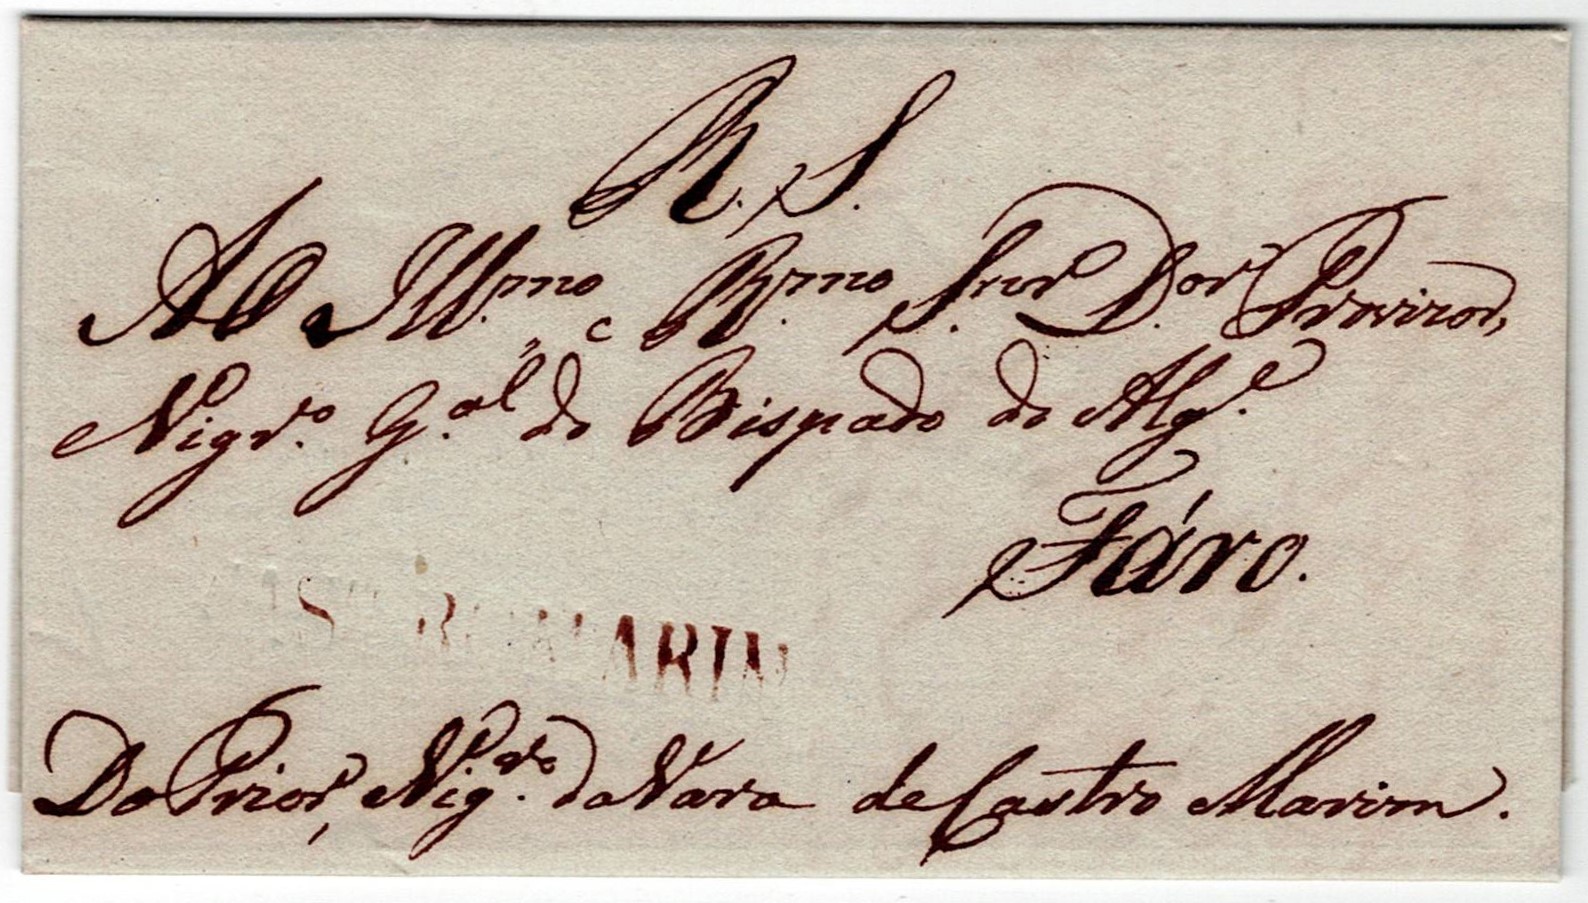 R. S.
Ao Ill.mo e R.mo Snr. D.or Provizor,
Vigr.o G.al do Bispado do Alg.e
Fáro.
MARIM
Do Prior, Vig.ro da Vara de Castro Marim.